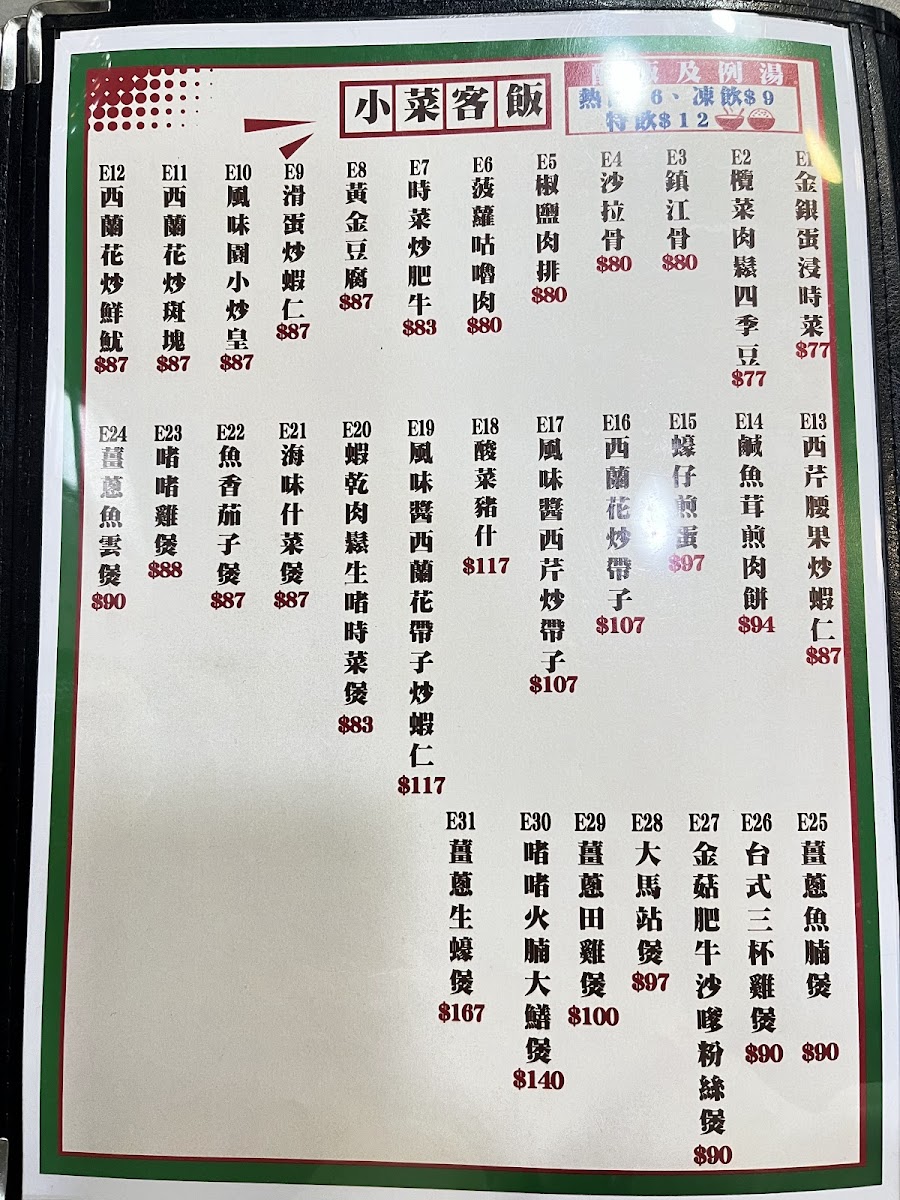 小菜客飯
飯及例湯
熱 6、凍飲$9
特飲$12
E1 金銀蛋浸時菜 $77
E2 欖菜肉鬆四季豆 $77
E3 鎮江骨 $80
E4 沙拉骨 $80
E5 椒鹽肉排 $80
E6 菠蘿咕嚕肉 $80
E7 時菜炒肥牛 $83
E8 黃金豆腐 $87
E9 滑蛋炒蝦仁 $87
E10 風味園小炒皇 $87
E11 西蘭花炒斑塊 $87
E12 西蘭花炒鮮魷 $87
E13 西芹腰果炒蝦仁 $87
E14 鹹魚茸煎肉餅 $94
E15 蠔仔煎蛋 $97
E16 西蘭花炒帶子 $107
E17 風味醬西芹炒帶子 $107
E18 酸菜豬什 $117
E19 風味醬西蘭花帶子炒蝦仁 $117
E20 蝦乾肉鬆生啫時菜煲 $83
E21 海味什菜煲 $87
E22 魚香茄子煲 $87
E23 啫啫雞煲 $88
E24 薑蔥魚雲煲 $90
E25 薑蔥魚腩煲 $90
E26 台式三杯雞煲 $90
E27 金菇肥牛沙嗲粉絲煲 $90
E28 大馬站煲 $97
E29 薑蔥田雞煲 $100
E30 啫啫火腩大鱔煲 $140
E31 薑蔥生蠔煲 $167